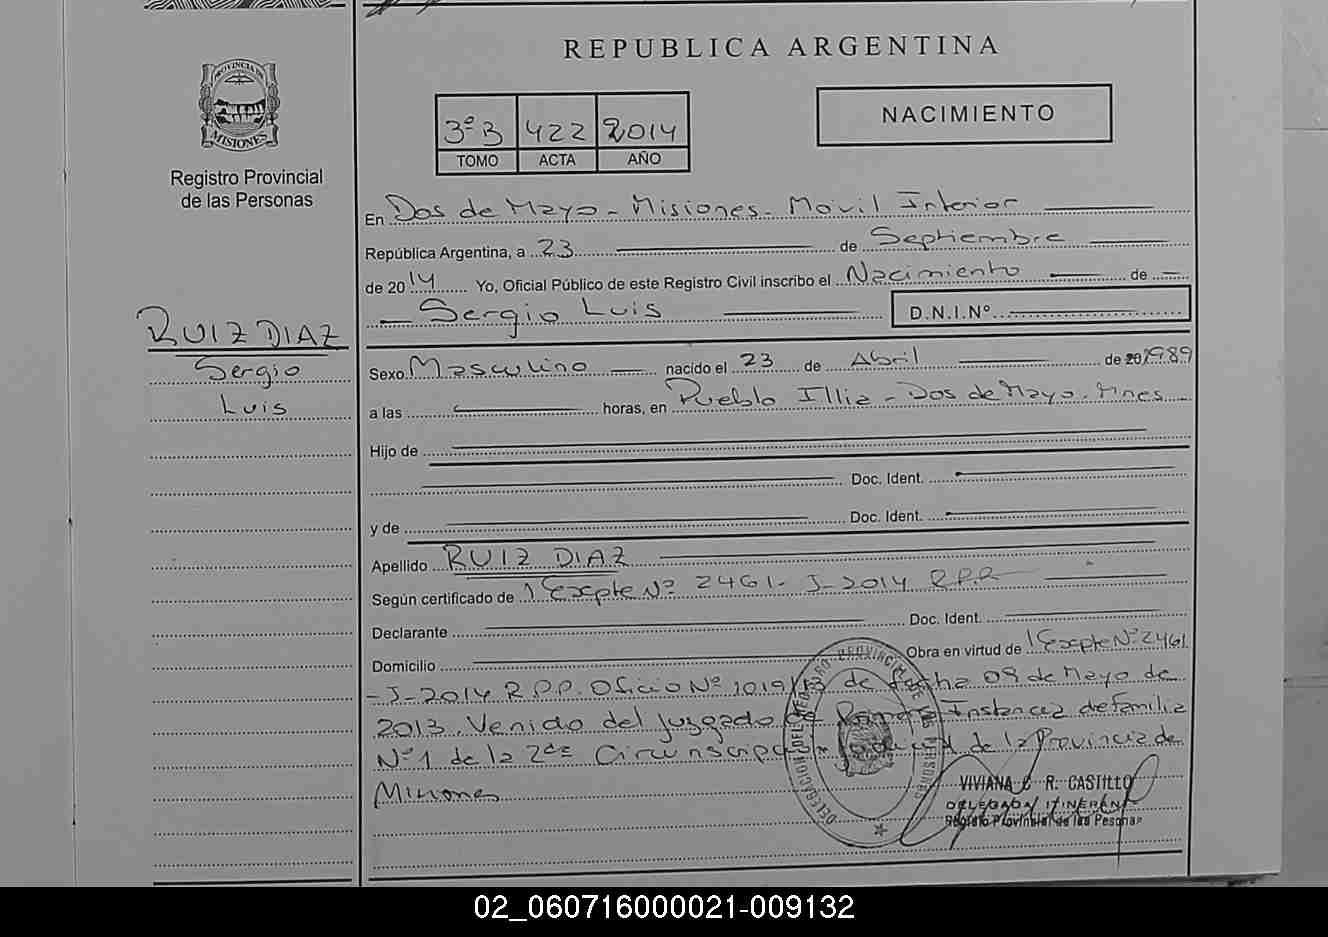 REPUBLICA ARGENTINA
PROVINCIA DE MISIONES
Registro Provincial
de las Personas
3º B 422 2014
TOMO ACTA AÑO
NACIMIENTO
En Dos de Mayo - Misiones - Movil Interior
República Argentina, a 23 de Septiembre
de 2014 Yo, Oficial Público de este Registro Civil inscribo el Nacimiento de
Sergio Luis D.N.I.Nº
RUIZ DIAZ
Sergio
Luis
Sexo Masculino nacido el 23 de Abril de 20 1989
a las horas, en Pueblo Illia - Dos de Mayo. Mnes
Hijo de
Doc. Ident.
y de Doc. Ident.
Apellido RUIZ DIAZ
Según certificado de Expte Nº 2461- J-2014 R.P.P.
Declarante Doc. Ident.
Domicilio Obra en virtud de Expte Nº 2461
-J-2014 R.P.P. Oficio Nº 1019/13 de fecha 09 de Mayo de
2013. Venido del Juzgado de Primera Instancia de Familia
Nº 1 de la 2da Circunscripción Judicial de la Provincia de
Misiones
VIVIANA C R. CASTILLO
DELEGADA ITINERANTE
Registro Provincial de las Personas
02_060716000021-009132